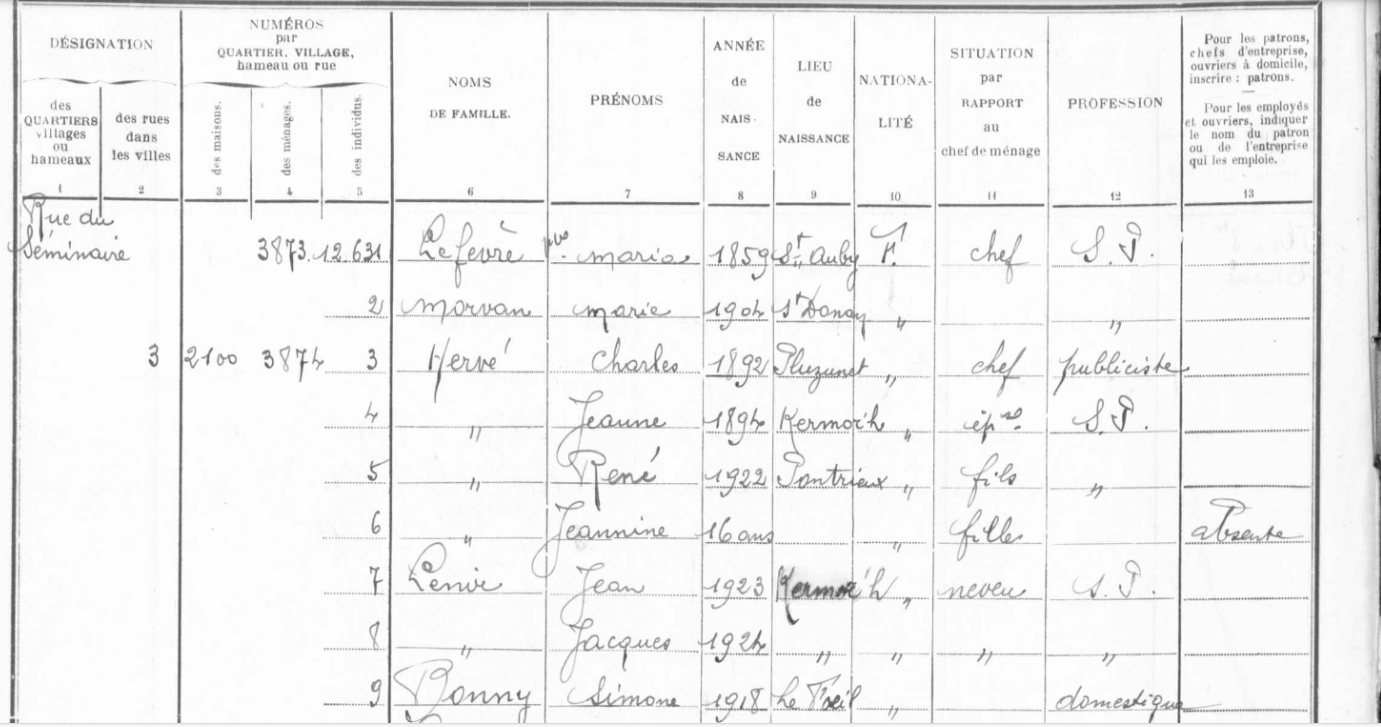 DÉSIGNATION
NUMÉROS
par
QUARTIER, VILLAGE,
hameau ou rue
des
QUARTIERS
villages
ou
hameaux
1
des rues
dans
les villes
2
des maisons.
3
des ménages.
4
des individus.
5
NOMS
DE FAMILLE.
6
PRÉNOMS
7
ANNÉE
de
NAIS-
SANCE
8
LIEU
de
NAISSANCE
9
NATIONA-
LITÉ
10
SITUATION
par
RAPPORT
au
chef de ménage
11
PROFESSION
12
Pour les patrons,
chefs d'entreprise,
ouvriers à domicile,
inscrire : patrons.
Pour les employés
et ouvriers, indiquer
le nom du patron
ou de l'entreprise
qui les emploie.
13
Rue du
Séminaire 3873 12.631 Lefèvre vve maria 1859 St Auby F. chef S.P.
2 Morvan marie 1904 St Donan " "
3 2100 3874 3 Hervé Charles 1892 Pluzunet " chef publiciste
4 " Jeanne 1894 Kermoc'h " épse S.P.
5 " René 1922 Pontrieux " fils "
6 " Jeannine 16 ans " fille absente
7 Jean 1923 Kermoc'h " neveu S.P.
8 " Jacques 1924 " " " "
9 Bonny Simone 1918 " domestique